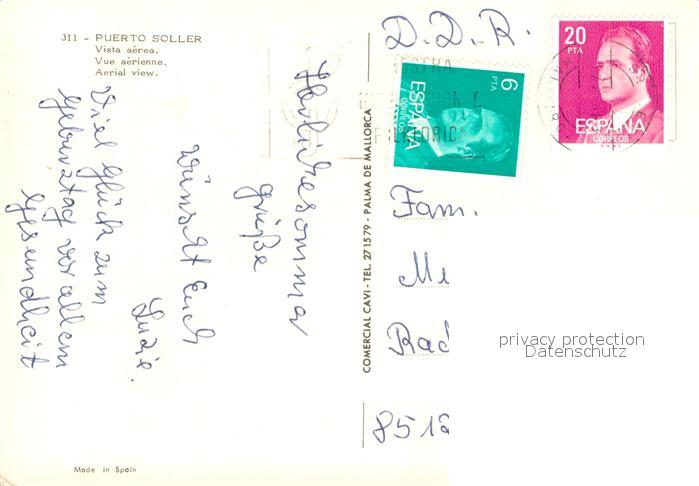 311 - PUERTO SOLLER
Vista aérea.
Vue aérienne.
Aerial view.
Herliche somma
grüße
wünscht Euch
Luzie.
Viel Glück zum
Geburztag vor allem
Gesundheit
Made in Spain
COMERCIAL CAVI - TEL. 271579 - PALMA DE MALLORCA
D.D.R.
6
PTA
ESPAÑA
CORREOS
20
PTA
ESPAÑA
CORREOS
Fam.
Me
Rad
8518
privacy protection
Datenschutz